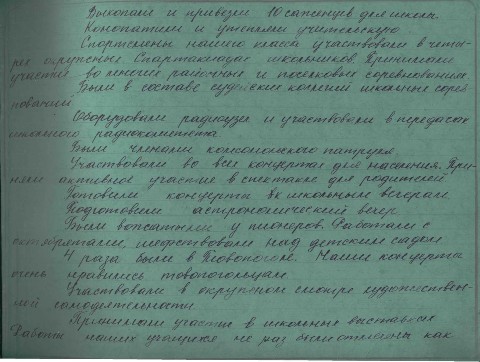 Выкопали и привезли 10 саженцев для школы.
Конопатили и утепляли учительскую
Спортсмены нашего класса участвовали в четы-
рех окружных Спартакиадах школьников. Принимали
участие во многих районных и поселковых соревнованиях.
Были в составе судейских коллегий школьных сорев-
нований.
Оборудовали радиоузел и участвовали в передачах
школьного радиокомитета.
Были членами комсомольского патруля.
Участвовали во всех концертах для населения. При-
няли активное участие в спектакле для родителей
Готовили концерты к школьным вечерам.
Подготовили астрономический вечер
Были вожатыми у пионеров. Работали с
октябрятами, шефствовали над детским садом
4 раза были в Товопоголе. Наши концерты
очень нравились товопогольцам.
Участвовали в окружном смотре художествен-
ной самодеятельности.
Принимали участие в школьных выставках
Работы наших учащихся не раз были отмечены как